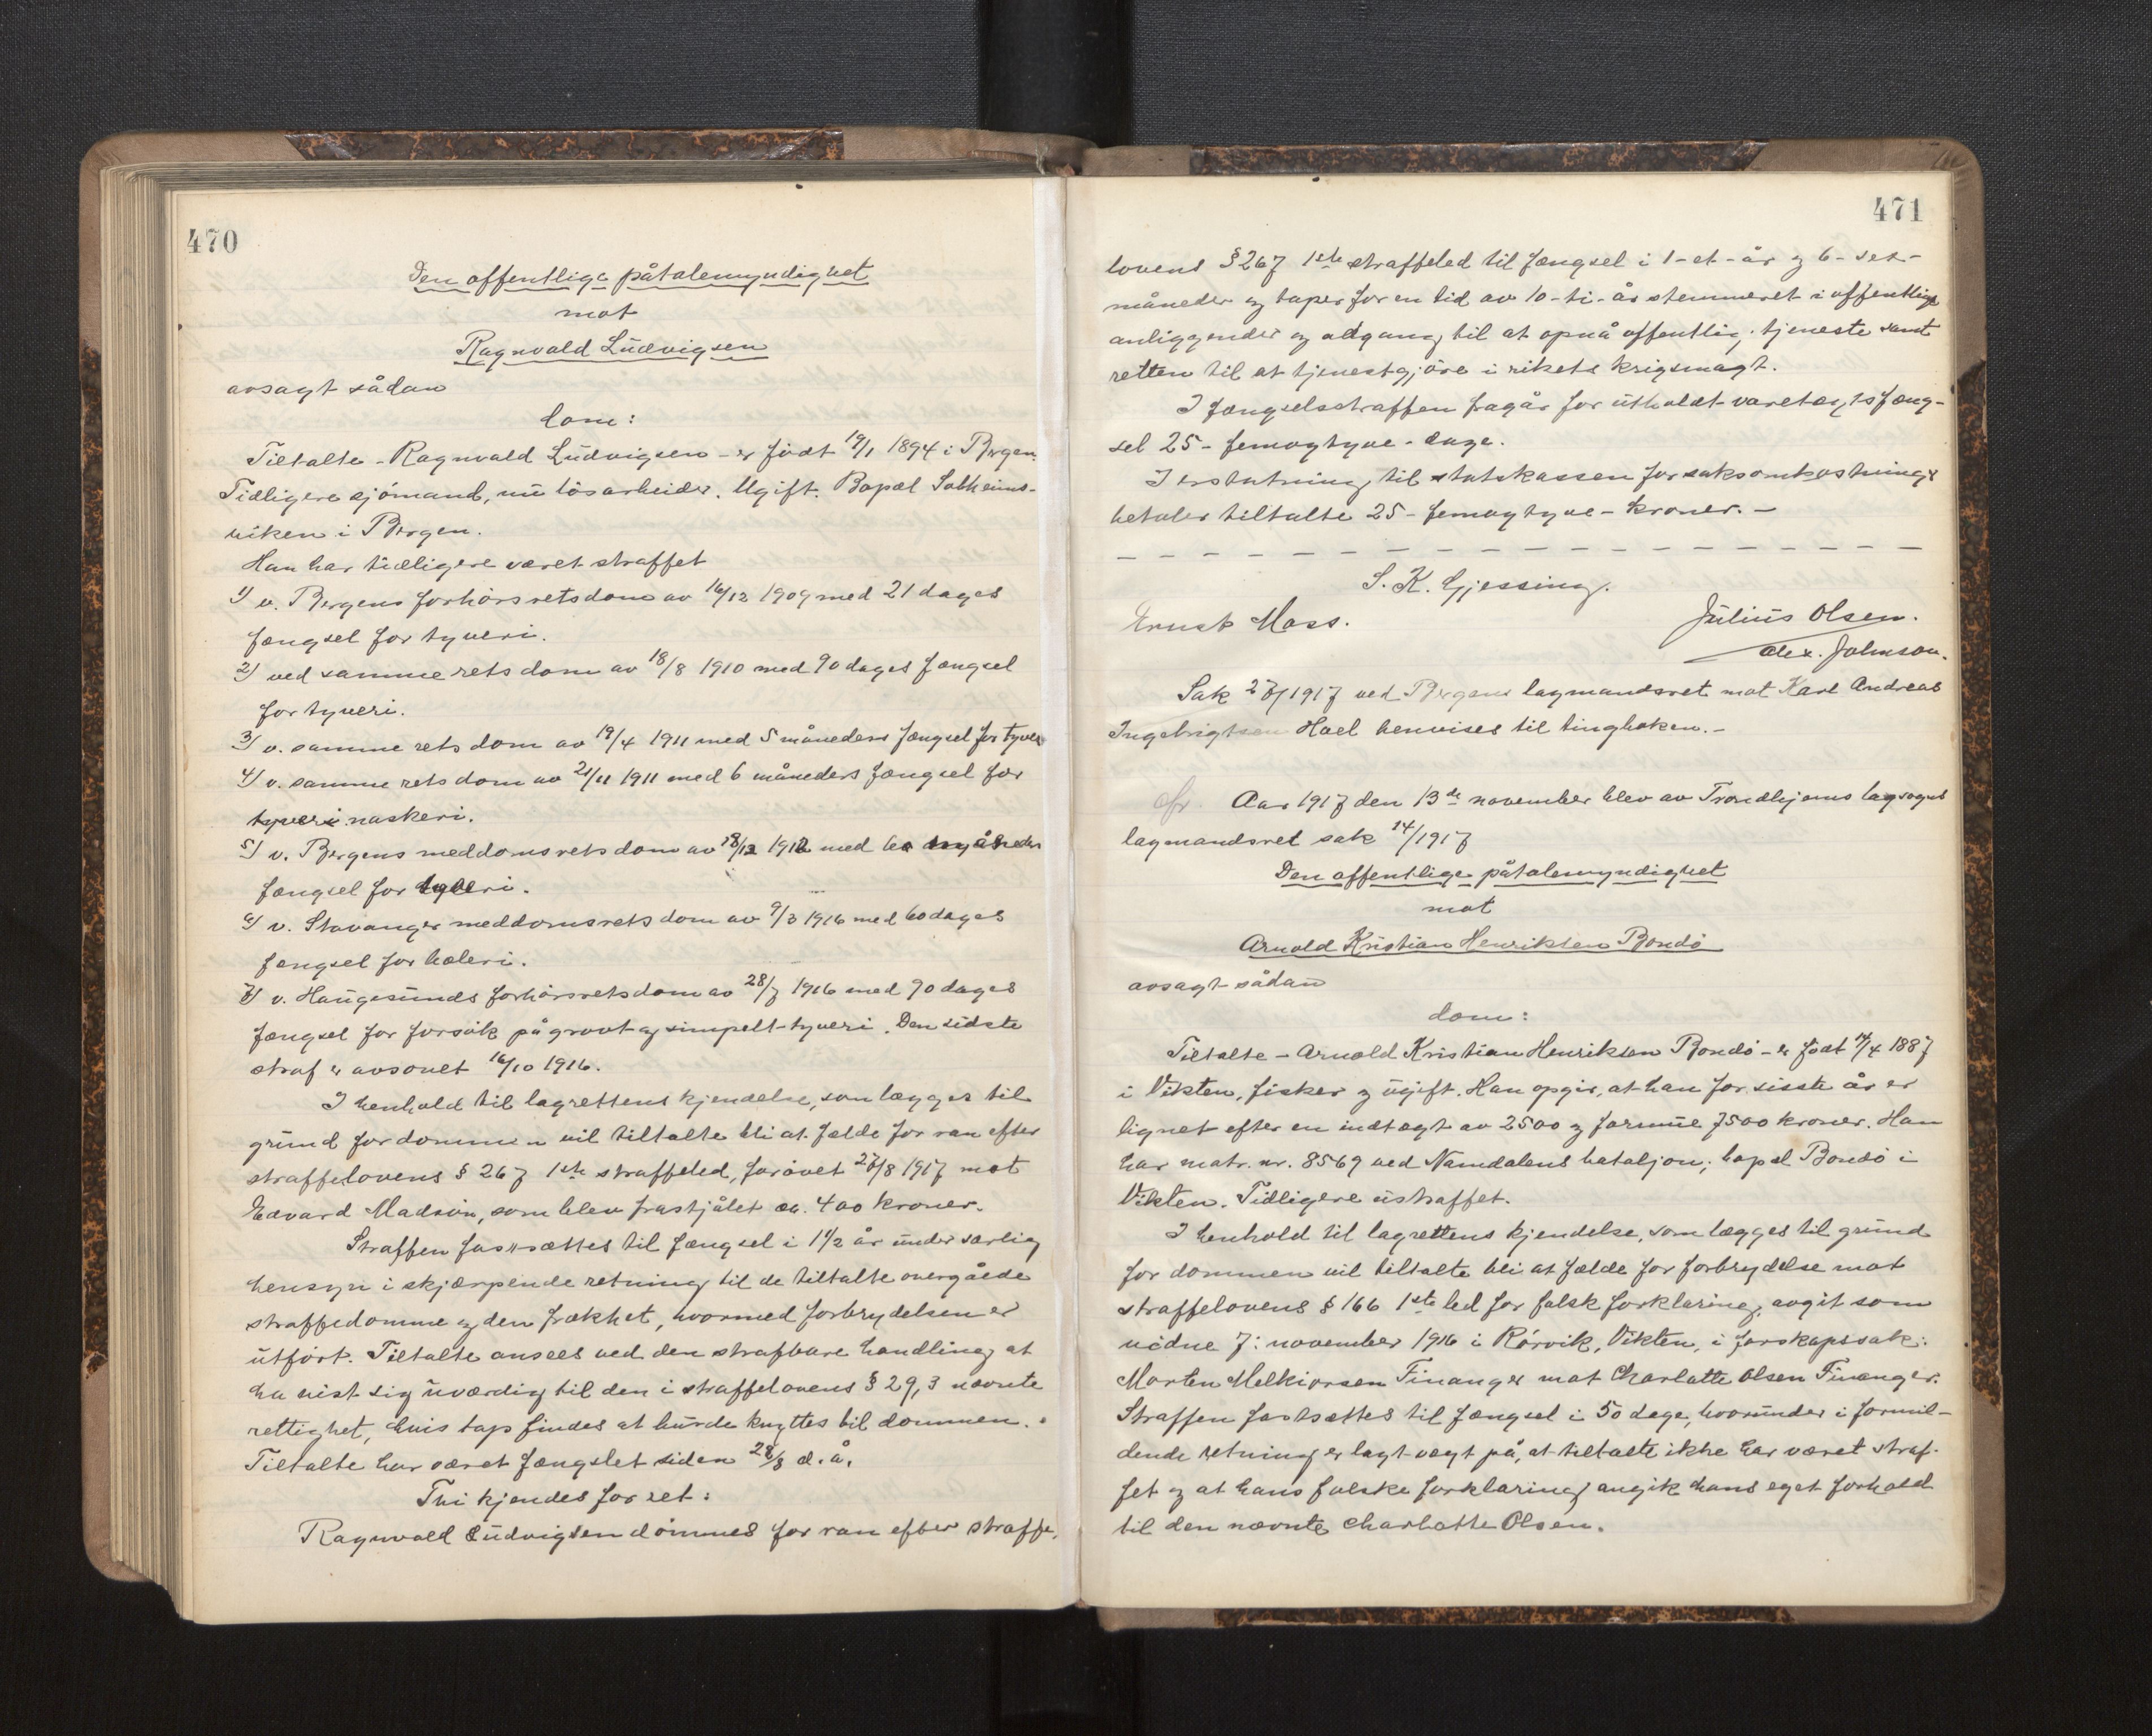 470
Den offentlige påtalemyndighet
mot
Ragnvald Ludvigsen
avsagt sådan
dom:
Tiltalte - Ragnvald Ludvigsen - er født 19/1 1894 i Bergen.
Tidligere sjømand, nu løsarbeider. Ugift. Bopæl Solheims-
viken i Bergen.
Han har tidligere været straffet
1) v. Bergens forhørsretsdom av 16/12 1909 med 21 dages
fængsel for tyveri.
2) ved samme rets dom av 18/8 1910 med 90 dages fængsel
for tyveri.
3) v. samme rets dom av 19/4 1911 med 5 måneders fængsel for tyveri
4) v. samme rets dom av 21/11 1911 med 6 måneders fængsel for
tyveri naskeri.
5) v. Bergens meddomsrets dom av 18/12 1912 med måneders
fængsel for tyveri.
6) v. Stavanger meddomsrets dom av 9/3 1916 med 60 dages
fængsel for hæleri.
7) v. Haugesunds forhørsretsdom av 28/7 1916 med 90 dages
fængsel for forsøk på grovt og simpelt tyveri. Den sidste
straf er avsonet 16/10 1916.
I henhold til lagrettens kjendelse, som lægges til
grund for dommen vil tiltalte bli at fælde for ran efter
straffelovens § 267 1ste straffeled, forøvet 27/8 1917 mot
Edvard Madsøn, som blev frastjålet ca. 400 kroner.
Straffen fastsættes til fængsel i 1 1/2 år under særlig
hensyn i skjærpende retning til de tiltalte overgåede
straffedomme og den frækhet, hvormed forbrydelsen er
utført. Tiltalte ansees ved den strafbare handling at
ha vist sig uværdig til den i straffelovens § 29,3 nævnte
rettighet, hvis tap findes at burde knyttes til dommen.
Tiltalte har været fængslet siden 28/8 d. å.
Thi kjendes for ret:
Ragnvald Ludvigsen dømmes for ran efter straffe-
471
lovens § 267 1ste straffeled til fængsel i 1 - et - år og 6 - seks -
måneder og taper for en tid av 10 - ti - år stemmeret i offentlige
anliggender og adgang til at opnå offentlig tjeneste samt
retten til at tjenestgjøre i rikets krigsmagt.
I fængselsstraffen fragår for utholdt varetægtsfæng-
sel 25 - femogtyve - dage.
I erstatning til statskassen for saksomkostninger
betaler tiltalte 25 - femogtyve - kroner. -
S. K. Gjessing.
Ernst Moss.
Julius Olsen.
Alex. Johnson.
Sak 27/1917 ved Bergens lagmandsret mot Karl Andreas
Ingebrigtsen Hael henvises til tingboken. -
Aar 1917 den 13de november blev av Trondhjems lagsogns
lagmandsret sak 14/1917
Den offentlige påtalemyndighet
mot
Arnold Kristian Henriksen Bondø
avsagt sådan
dom:
Tiltalte - Arnold Kristian Henriksen Bondø - er født 14/4 1887
i Vikten, fisker og ugift. Han opgir, at han for sisste år er
lignet efter en indtægt av 2500 og formue 7500 kroner. Han
har matr. nr. 8569 ved Namdalens bataljon; bopæl Bondø i
Vikten. Tidligere ustraffet.
I henhold til lagrettens kjendelse, som lægges til grund
for dommen vil tiltalte bli at fælde for forbrydelse mot
straffelovens § 166 1ste led for falsk forklaring, avgit som
vidne 7: november 1916 i Rørvik, Vikten, i farskapssak:
Morten Melkiorsen Finanger mot Charlotte Olsen Finanger.
Straffen fastsættes til fængsel i 50 dage, hvorunder i formil-
dende retning er lagt vægt på, at tiltalte ikke har været straf-
fet og at hans falske forklaring angik hans eget forhold
til den nævnte Charlotte Olsen.